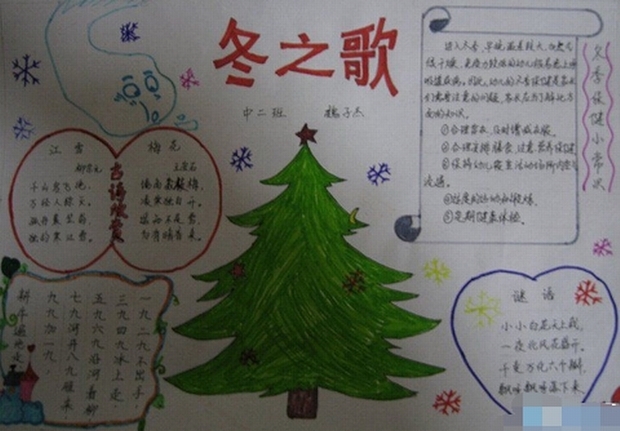 冬之歌
中二班 杨子杰
江雪
柳宗元
千山鸟飞绝,
万径人踪灭。
孤舟蓑笠翁,
独钓寒江雪。
古诗欣赏
梅花
王安石
墙角数枝梅,
凌寒独自开。
遥知不是雪,
为有暗香来。
冬季保健小常识
进入冬季,早晚温差较大,加之气
候干燥,免疫力较低的幼儿很容易患上呼
吸道疾病。因此,幼儿的冬季保健是家长
们需要注意的问题,家长应当了解此方
面的知识。
①合理穿衣,及时增减衣服。
②合理安排膳食,注意营养保健
③保持幼儿寝室活动场所内空气
流通。
④适度的运动和锻炼。
⑤定期健康体检。
一九二九不出手,
三九四九冰上走,
五九六九沿河看柳,
七九河开八九雁来,
九九加一九,
耕牛遍地走。
谜语
小小白花天上栽,
一夜北风花盛开。
千变万化六个瓣,
飘呀飘呀落下来。